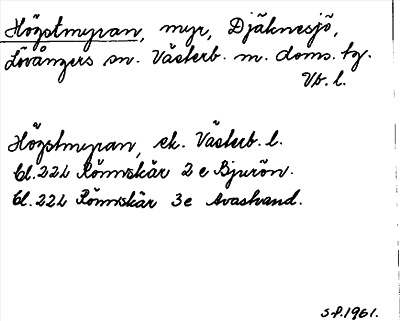 Högstmyran, myr, Djäknesjö,
Lövångers sn. Västerb. m. doms. tg.
Vb. l.
Högstmyran, ek. Västerb. l.
bl. 22L Rönnskär 2 e Bjurön.
bl. 22L Rönnskär 3e Avastrand.
S.P. 1961.